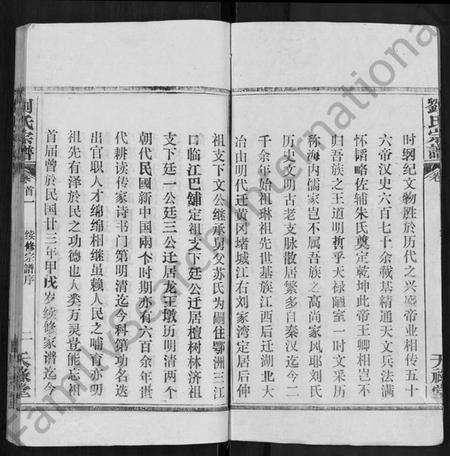 劉氏宗譜
卷
天祿堂
时纲纪文物胜於历代之兴盛帝业相传五十
六帝汉史六百七十余载基精通天文兵法满
怀韬略佐辅朱氏奠定乾坤此帝王卿相岂不
归吾族之王道明哲乎天禄阁室一时文采历
称海内儒家岂不属吾族之高尚家风耶刘氏
历史文明古老支脉散居繁多自秦汉迄今二
千余年始祖琳祖先世基族江西后迁湖北大
冶由明代迁黄冈堵城江右刘家湾定居后仲
祖支下文公继承舅父苏氏为住鄂洲三江
口临江巴铺定祖支下廷公迁居檀树林济祖
支下廷一公廷三公迁居龙王墩历明清两个
朝代民國新中国兩个时期亦有六百余年数
代耕读传家诗书门第明清迄今科第功名迭
出官职人才绵绵相继虽赖人民之哺育亦明
祖先有泽於民之功德也人类万灵岂能忘祖
首届曾於民国廿三年甲戌岁续修家谱迄今
劉氏宗譜
卷首
续修宗谱序
二
天祿堂
Family Search International